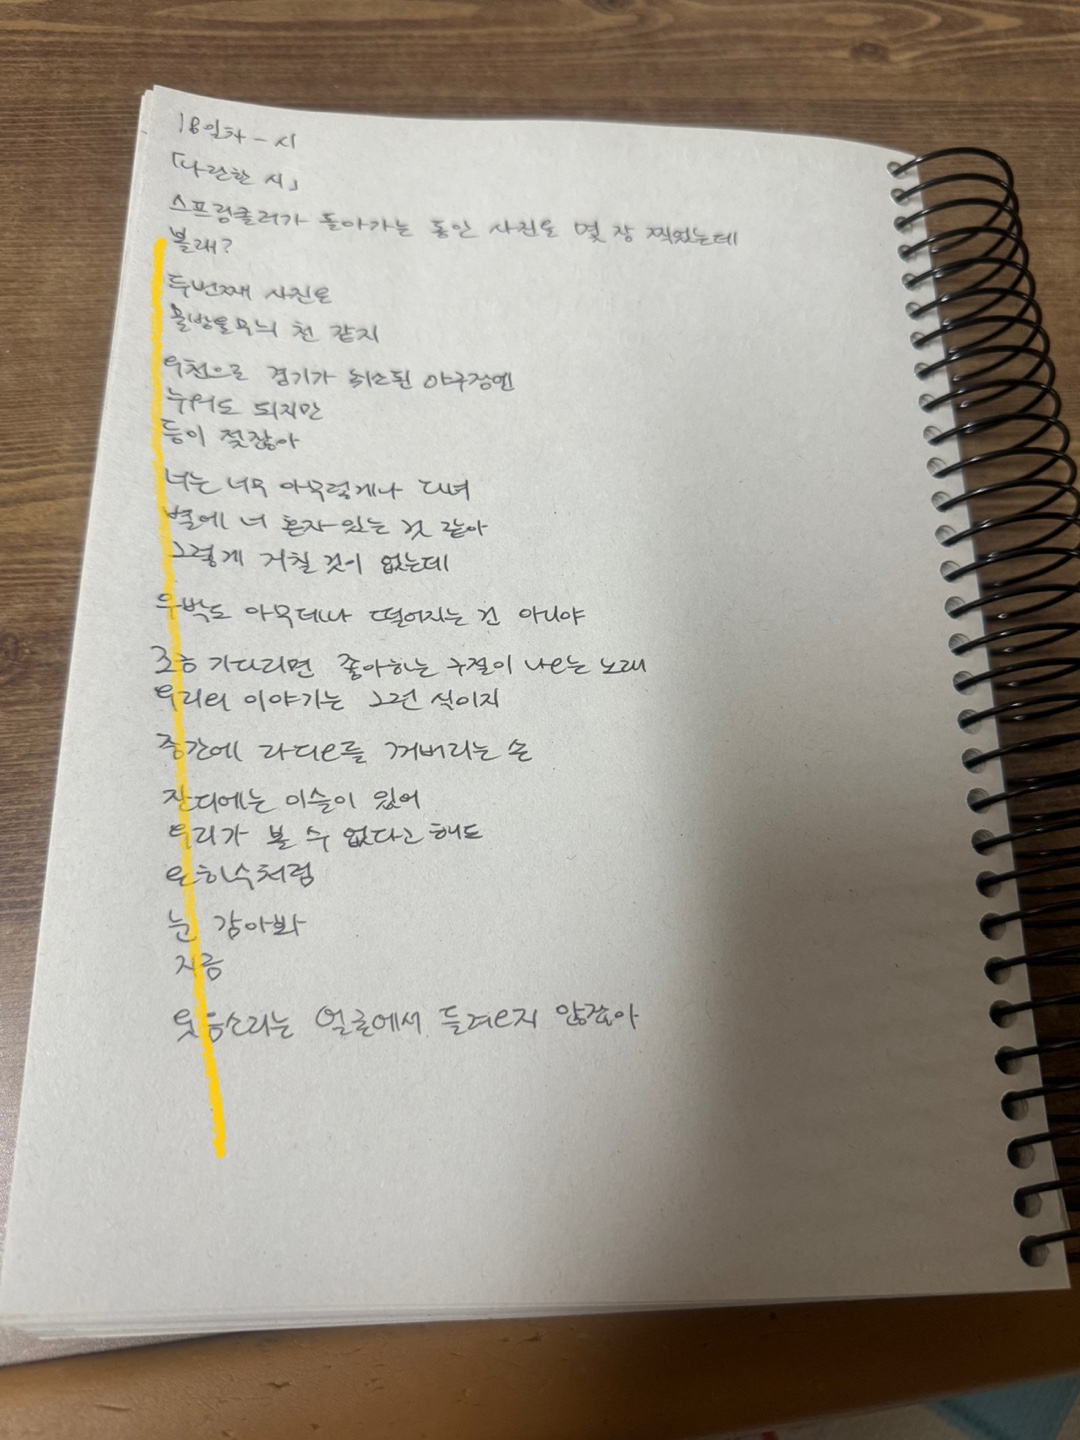 18일차 - 시
「나란한 시」
스프링클러가 돌아가는 동안 사진을 몇 장 찍었는데
볼래?
두번째 사진은
물방울무늬 천 같지
우천으로 경기가 취소된 야구장엔
누워도 되지만
등이 젖잖아
너는 너무 아무렇게나 다녀
별에 너 혼자 있는 것 같아
그렇게 거칠 것이 없는데
우박도 아무데나 떨어지는 건 아니야
조금 기다리면 좋아하는 구절이 나오는 노래
우리의 이야기는 그런 식이지
중간에 라디오를 꺼버리는 손
잔디에는 이슬이 있어
우리가 볼 수 없다고 해도
은하수처럼
눈 감아봐
지금
웃음소리는 얼굴에서 들려오지 않잖아